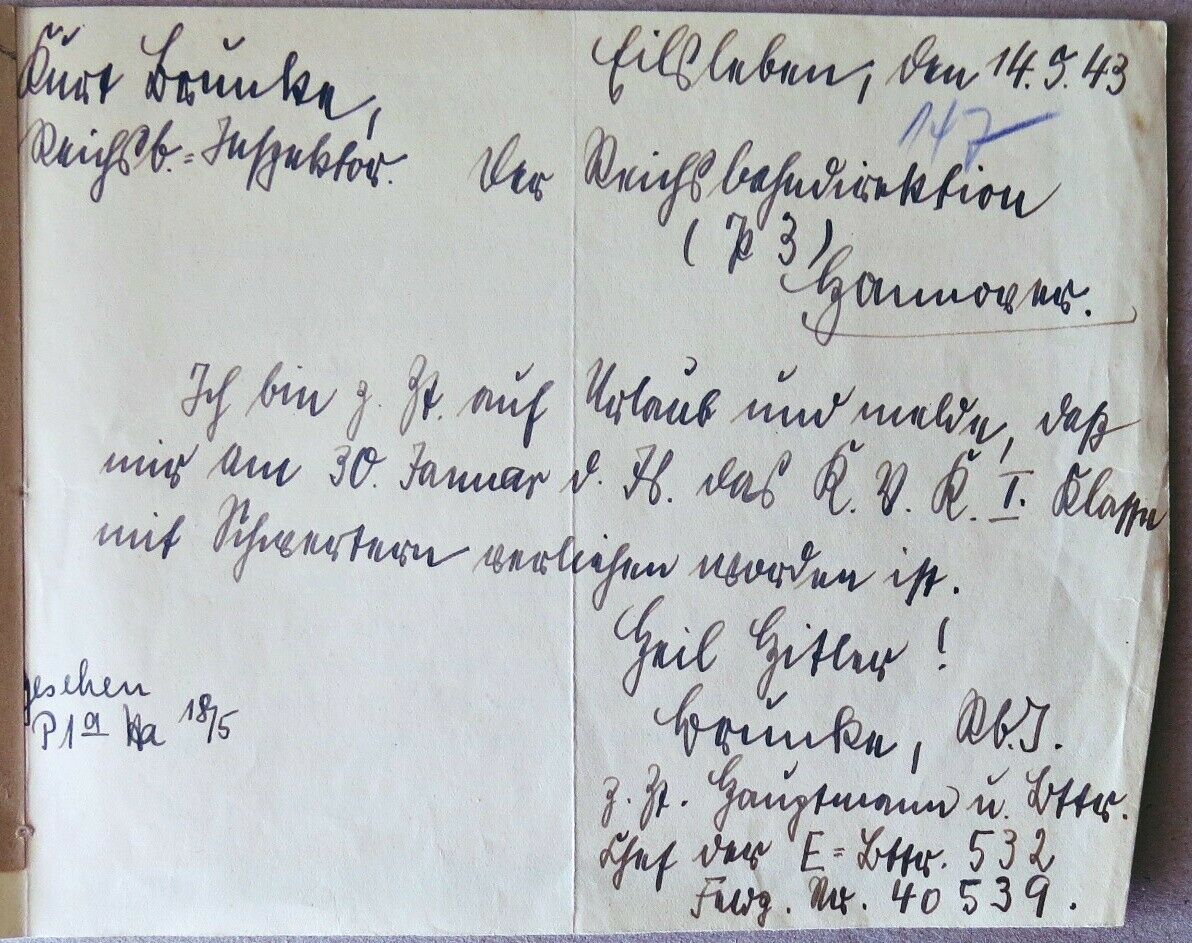 Kurt Brunke,
Eilsleben, den 14.5.43
147
Reichsb.=Inspektor.
Der Reichsbahndirektion
(P 3)
Hannover.
Ich bin z. Zt. auf Urlaub und melde, daß
mir am 30. Januar d. Js. das K. V. K. I. Klasse
mit Schwertern verliehen worden ist.
Heil Hitler!
gesehen
P1a 18/5
Brunke, Rb.I.
z. Zt. Hauptmann u. Bttr.
Chef der E=Bttr. 532
Feldp. Nr. 40 539.